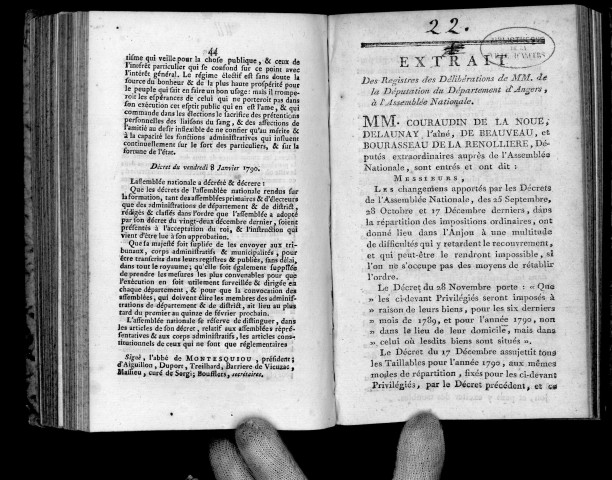 44
tisme qui veille pour la chose publique, & ceux de
l'intérêt particulier qui se confond sur ce point avec
l'intérêt général. Le régime électif est sans doute la
source du bonheur & de la plus haute prospérité pour
le peuple qui sait en faire un bon usage: mais il trompe-
roit les espérances de celui qui ne porteroit pas dans
son exécution cet esprit public qui en est l'ame, & qui
commande dans les élections le sacrifice des prétentions
personnelles des liaisons du sang, & des affections de
l'amitié au desir inflexible de ne confier qu'au mérite &
à la capacité les fonctions administratives qui influent
continuellement sur le sort des particuliers, & sur la
fortune de l'état.
Décret du vendredi 8 Janvier 1790.
Lassemblée nationale a décrété & décrete:
Que les décrets de l'assemblée nationale rendus sur
la formation, tant des assemblées primaires & d'électeurs
que des administrations de département & de district,
rédigés & classés dans l'ordre que l'assemblée a adopté
par son décret du vingt-deux décembre dernier, soient
présentés à l'acceptation du roi, & l'instruction qui
vient d'être lue à son approbation.
Que sa majesté soit supliée de les envoyer aux tri-
bunaux, corps administratifs & municipalités, pour
être transcrits dans leurs registres & publiés, sans délai,
dans tout le royaume; qu'elle soit également suppliée
de prendre les mesures les plus convenables pour que
l'exécution en soit utilement surveillée & dirigée en
chaque département, & pour que la convocation des
assemblées, qui doivent élire les membres des adminis-
trations de département & de district, ait lieu au plus
tard du premier au quinze de février prochain.
L'assemblée nationale se réserve de distinguer, dans
les articles de son décret, relatif aux assemblées répré-
sentatives & aux corps administratifs, les articles consti-
tutionnels de ceux qui ne sont que réglementaires
Signé, l'abbé de MONTESQUIOU, président;
d'Aiguillon, Duport, Treilhard, Barrere de Vieuzac,
Massieu, curé de Sergi; Boufflers, secrétaires.
22.
BIBLIOTHEQUE
DE LA
VILLE D'ANGERS
EXTRAIT
Des Registres des Délibérations de MM. de
la Députation du Département d'Angers,
à l'Assemblée Nationale.
MM. COURAUDIN DE LA NOUE,
DELAUNAY, l'aîné, DE BEAUVEAU, et
BOURASSEAU DE LA RENOLLIERE, Dé-
putés extraordinaires auprès de l'Assemblée
Nationale, sont entrés et ont dit:
MESSIEURS,
LES changemens apportés par les Décrets
de l'Assemblée Nationale, des 25 Septembre,
28 Octobre et 17 Décembre derniers, dans
la répartition des impositions ordinaires, ont
donné lieu dans l'Anjou à une multitude
de difficultés qui y retardent le recouvrement,
et qui peut-être le rendront impossible, si
l'on ne s'occupe pas des moyens de rétablir
l'ordre.
Le Décret du 28 Novembre porte: « Que
» les ci-devant Privilégiés seront imposés à
» raison de leurs biens, pour les six derniers
» mois de 1789, et pour l'année 1790, non
» dans le lieu de leur domicile, mais dans
» celui où lesdits biens sont situés ».
Le Décret du 17 Décembre assujettit tous
les Taillables pour l'année 1790, aux mêmes
modes de répartition, fixés pour les ci-devant
Privilégiés, par le Décret précédent, et ce